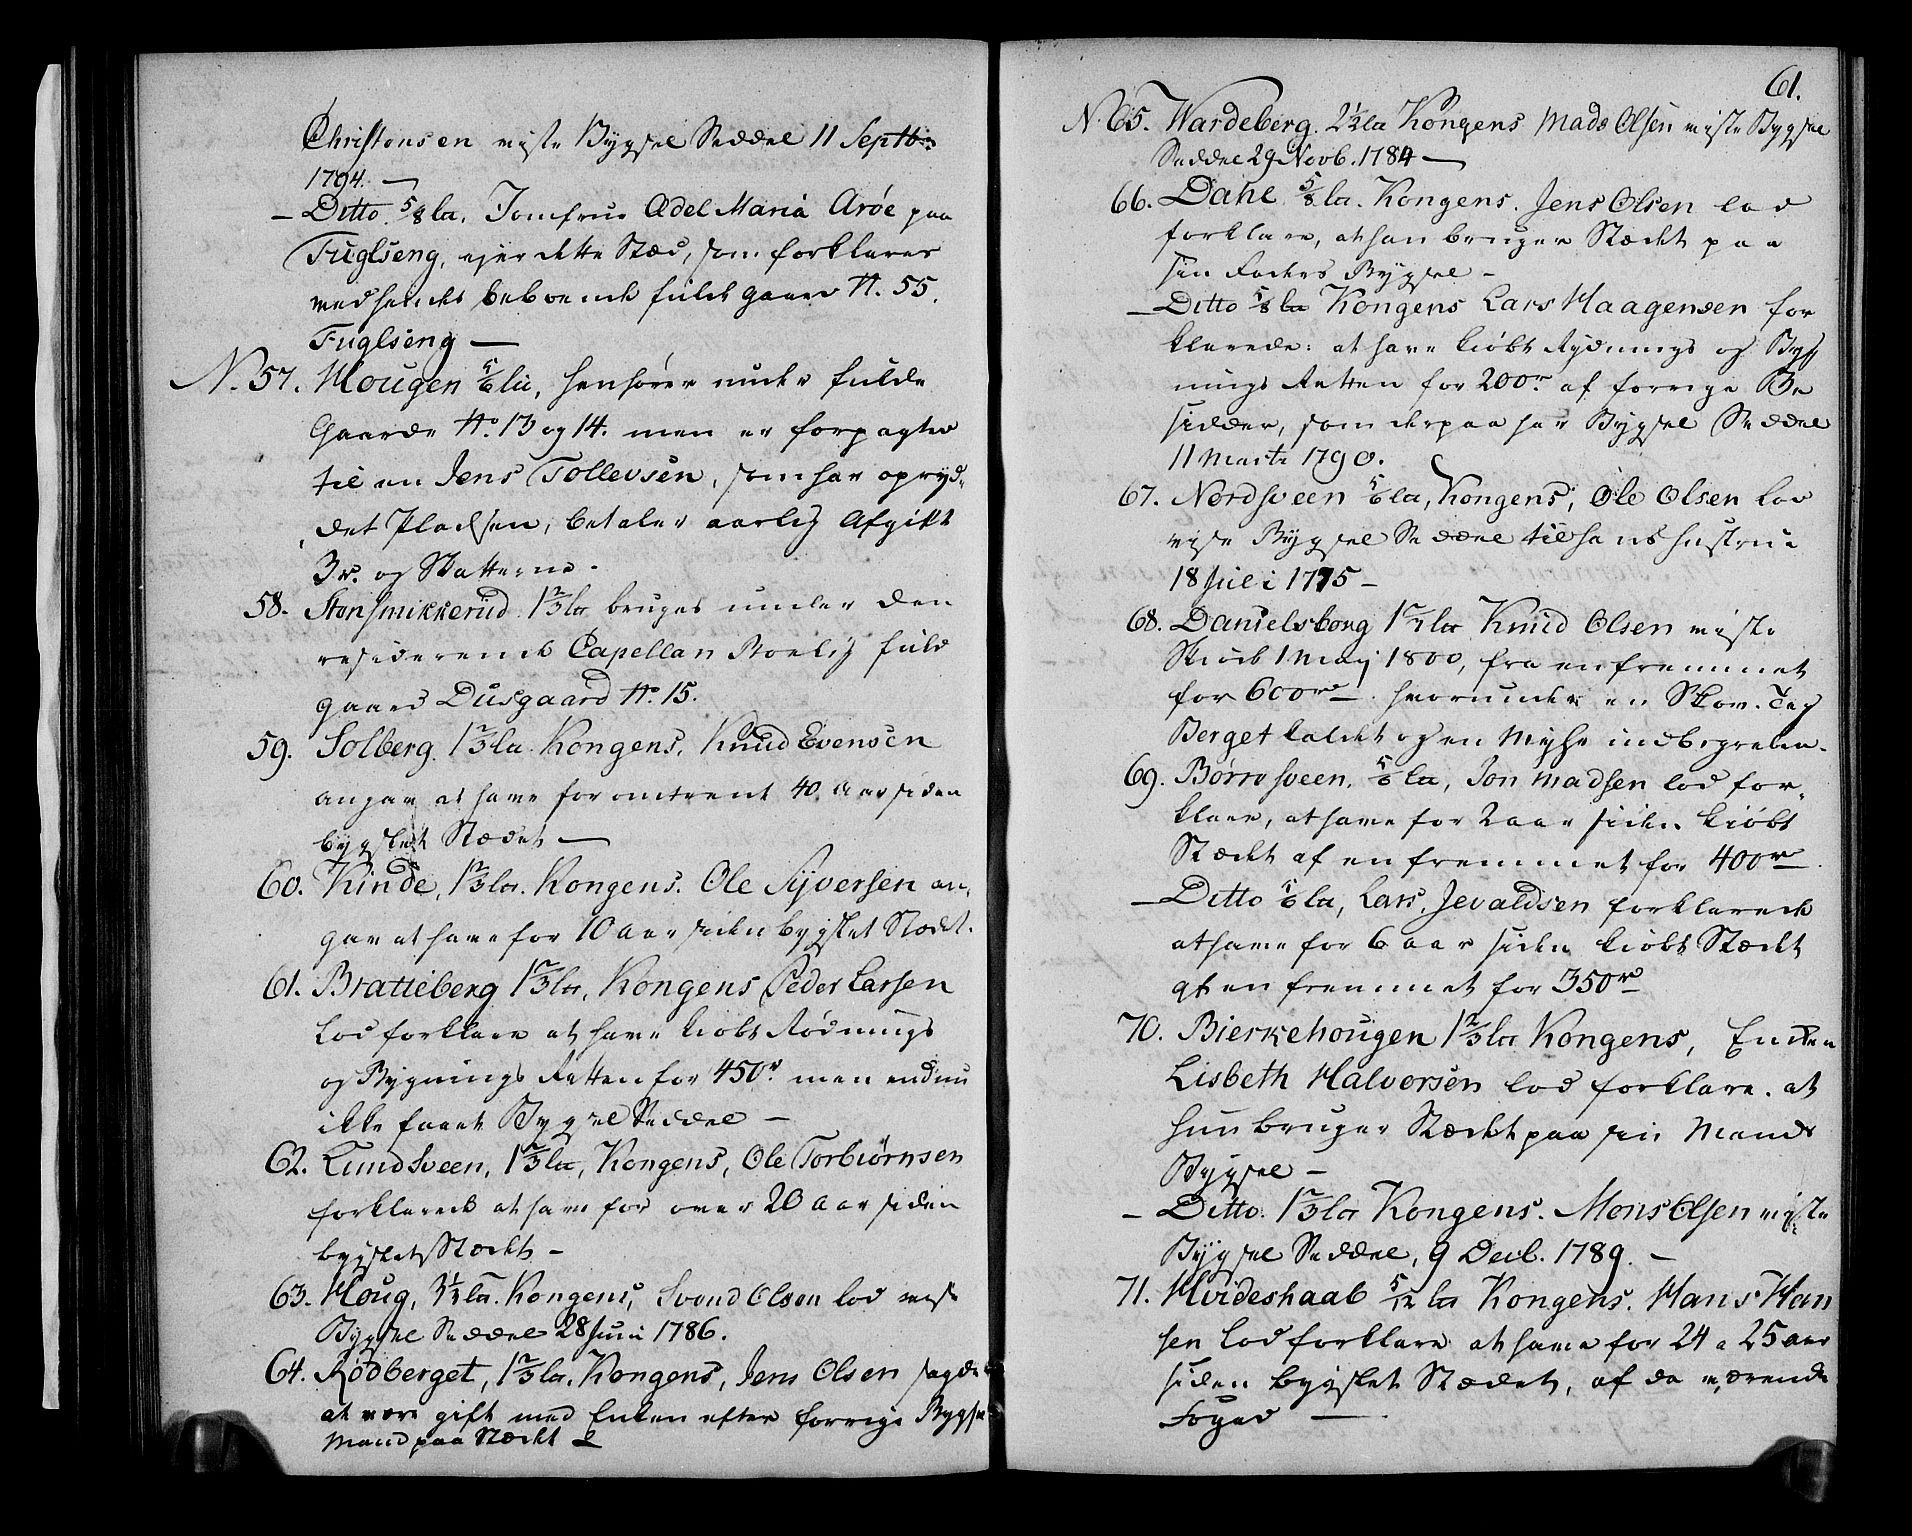 Christensen viste Bygsel Seddel 11 Septb:
1794. —
– Ditto 5/8 la. Jomfrue Ædel Maria Arøe paa
Fuglseng, ejer dette Stæd, som forklares
ved hendes beboende fulde gaard N. 55.
Fuglseng —
N. 57. Hougen 5/6 la, henhører under fulde
Gaarde No. 13 og 14. men er forpagted
til en Jens Tollevsen, som har opryd-
det Pladsen, betaler aarlig Afgift
3 r. og Skatterne.
58. Stensmikkerud. 1 2/3 la bruges under den
residerende Capellan Boelig fuld
gaard Dusgaard No. 15.
59. Solberg. 1 2/3 la. Kongens, Knud Evensen
angav at have for omtrent 40 Aar siden
bygslet Stædet —
60. Kinde, 1 2/3 la. Kongens. Ole Syversen an-
gav at have for 10 Aar siden bygslet Stædet.
61. Bratteberg 1 2/3 la, Kongens Peder Larsen
lod forklare at have kiøbt Rødnings
og Bygnings Retten for 450 r. men endnu
ikke faaet Bygsel Seddel —
62. Lundsveen, 1 2/3 la, Kongens, Ole Torbiørnsen
forklarede at have for over 20 Aar siden
bygslet Stædet –
63. Houg, la. Kongens, Svend Olsen lod vise
Bygsel Seddel 28 Juni 1786.
64. Rødberget, 1 2/3 la. Kongens, Jens Olsen sagde
at være gift med Enken efter forrige Bygsel
Mand paa Stædet
61.
N. 65. Wardeberg. 2 1/2 la Kongens Mads Olsen viste Bygsel
Seddel 29 Novb. 1784 —
66. Dahl 5/8 la. Kongens. Jens Olsen lod
forklare, at han bruger Stædet paa
sin Faders Bygsel –
– Ditto 5/8 la Kongens Lars Haagensen for
klarede: at have kiøbt Rydnings og Byg
nings Retten for 200 r. af forrige Be
sidder, som derpaa har Bygsel Seddel
11 Marti 1790.
67. Nordsveen 5/6 la, Kongens, Ole Olsen lod
vise Bygsel Seddel til hans hustrue
18 Juli 1775 –
68. Danielsborg 1 la Knud Olsen viste
Skiøde 1 Maj 1800, fra en fremmet
for 600 r. hvorunder en Skov-Teg
Berget kaldet og en Myhr indbegreben.
69. Børrosveen, 5/6 la, Jon Madsen lod for-
klare, at have for 2 aar siden kiøbt
Stædet af en fremmet for 400 r.
– Ditto 5/6 la, Lars Jevaldsen forklarede
at have for 6 aar siden kiøbt Stædet
af en fremmet for 350 r.
70. Bierkehougen 1 2/3 la Kongens, Enken
Lisbeth Halvorsen lod forklare. at
hun bruger Stædet paa sin Mands
Bygsel –
– Ditto. 1 2/3 la Kongens. Mons Olsen viste
Bygsel Seddel, 9 Decb. 1789. –
71. Hvideshaab 5/12 la Kongens. Hans Han
sen lod forklare at have for 24 a 25 aar
siden bygslet Stædet, af da værende
Foged —